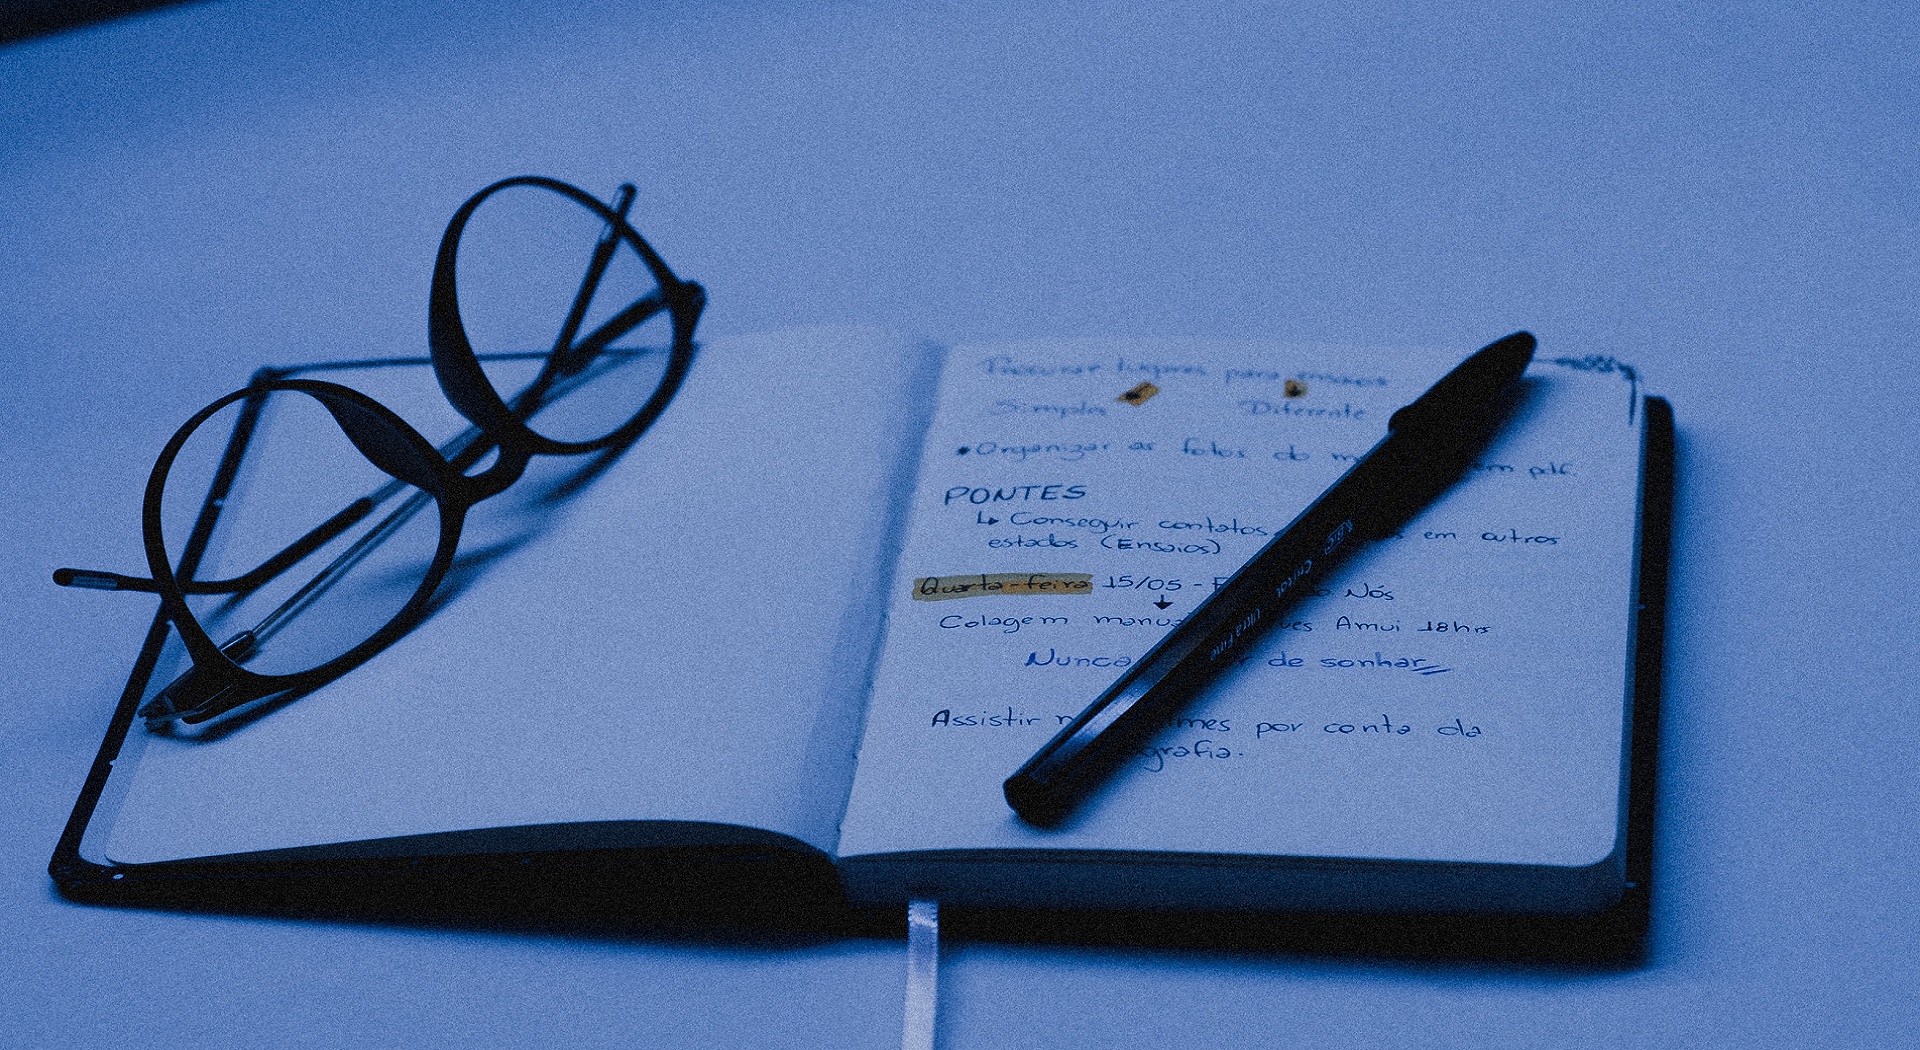 Procurar lugares para ensaios
Simples Diferente
Organizar as fotos do em pdf.
PONTES
↳ Conseguir contatos em outros
estados (Ensaios)
Quarta-feira 15/05 - Nós
Colagem Amui 18hrs
Nunca de sonhar
Assistir por conta da
BIC Cristal Ultra Fine